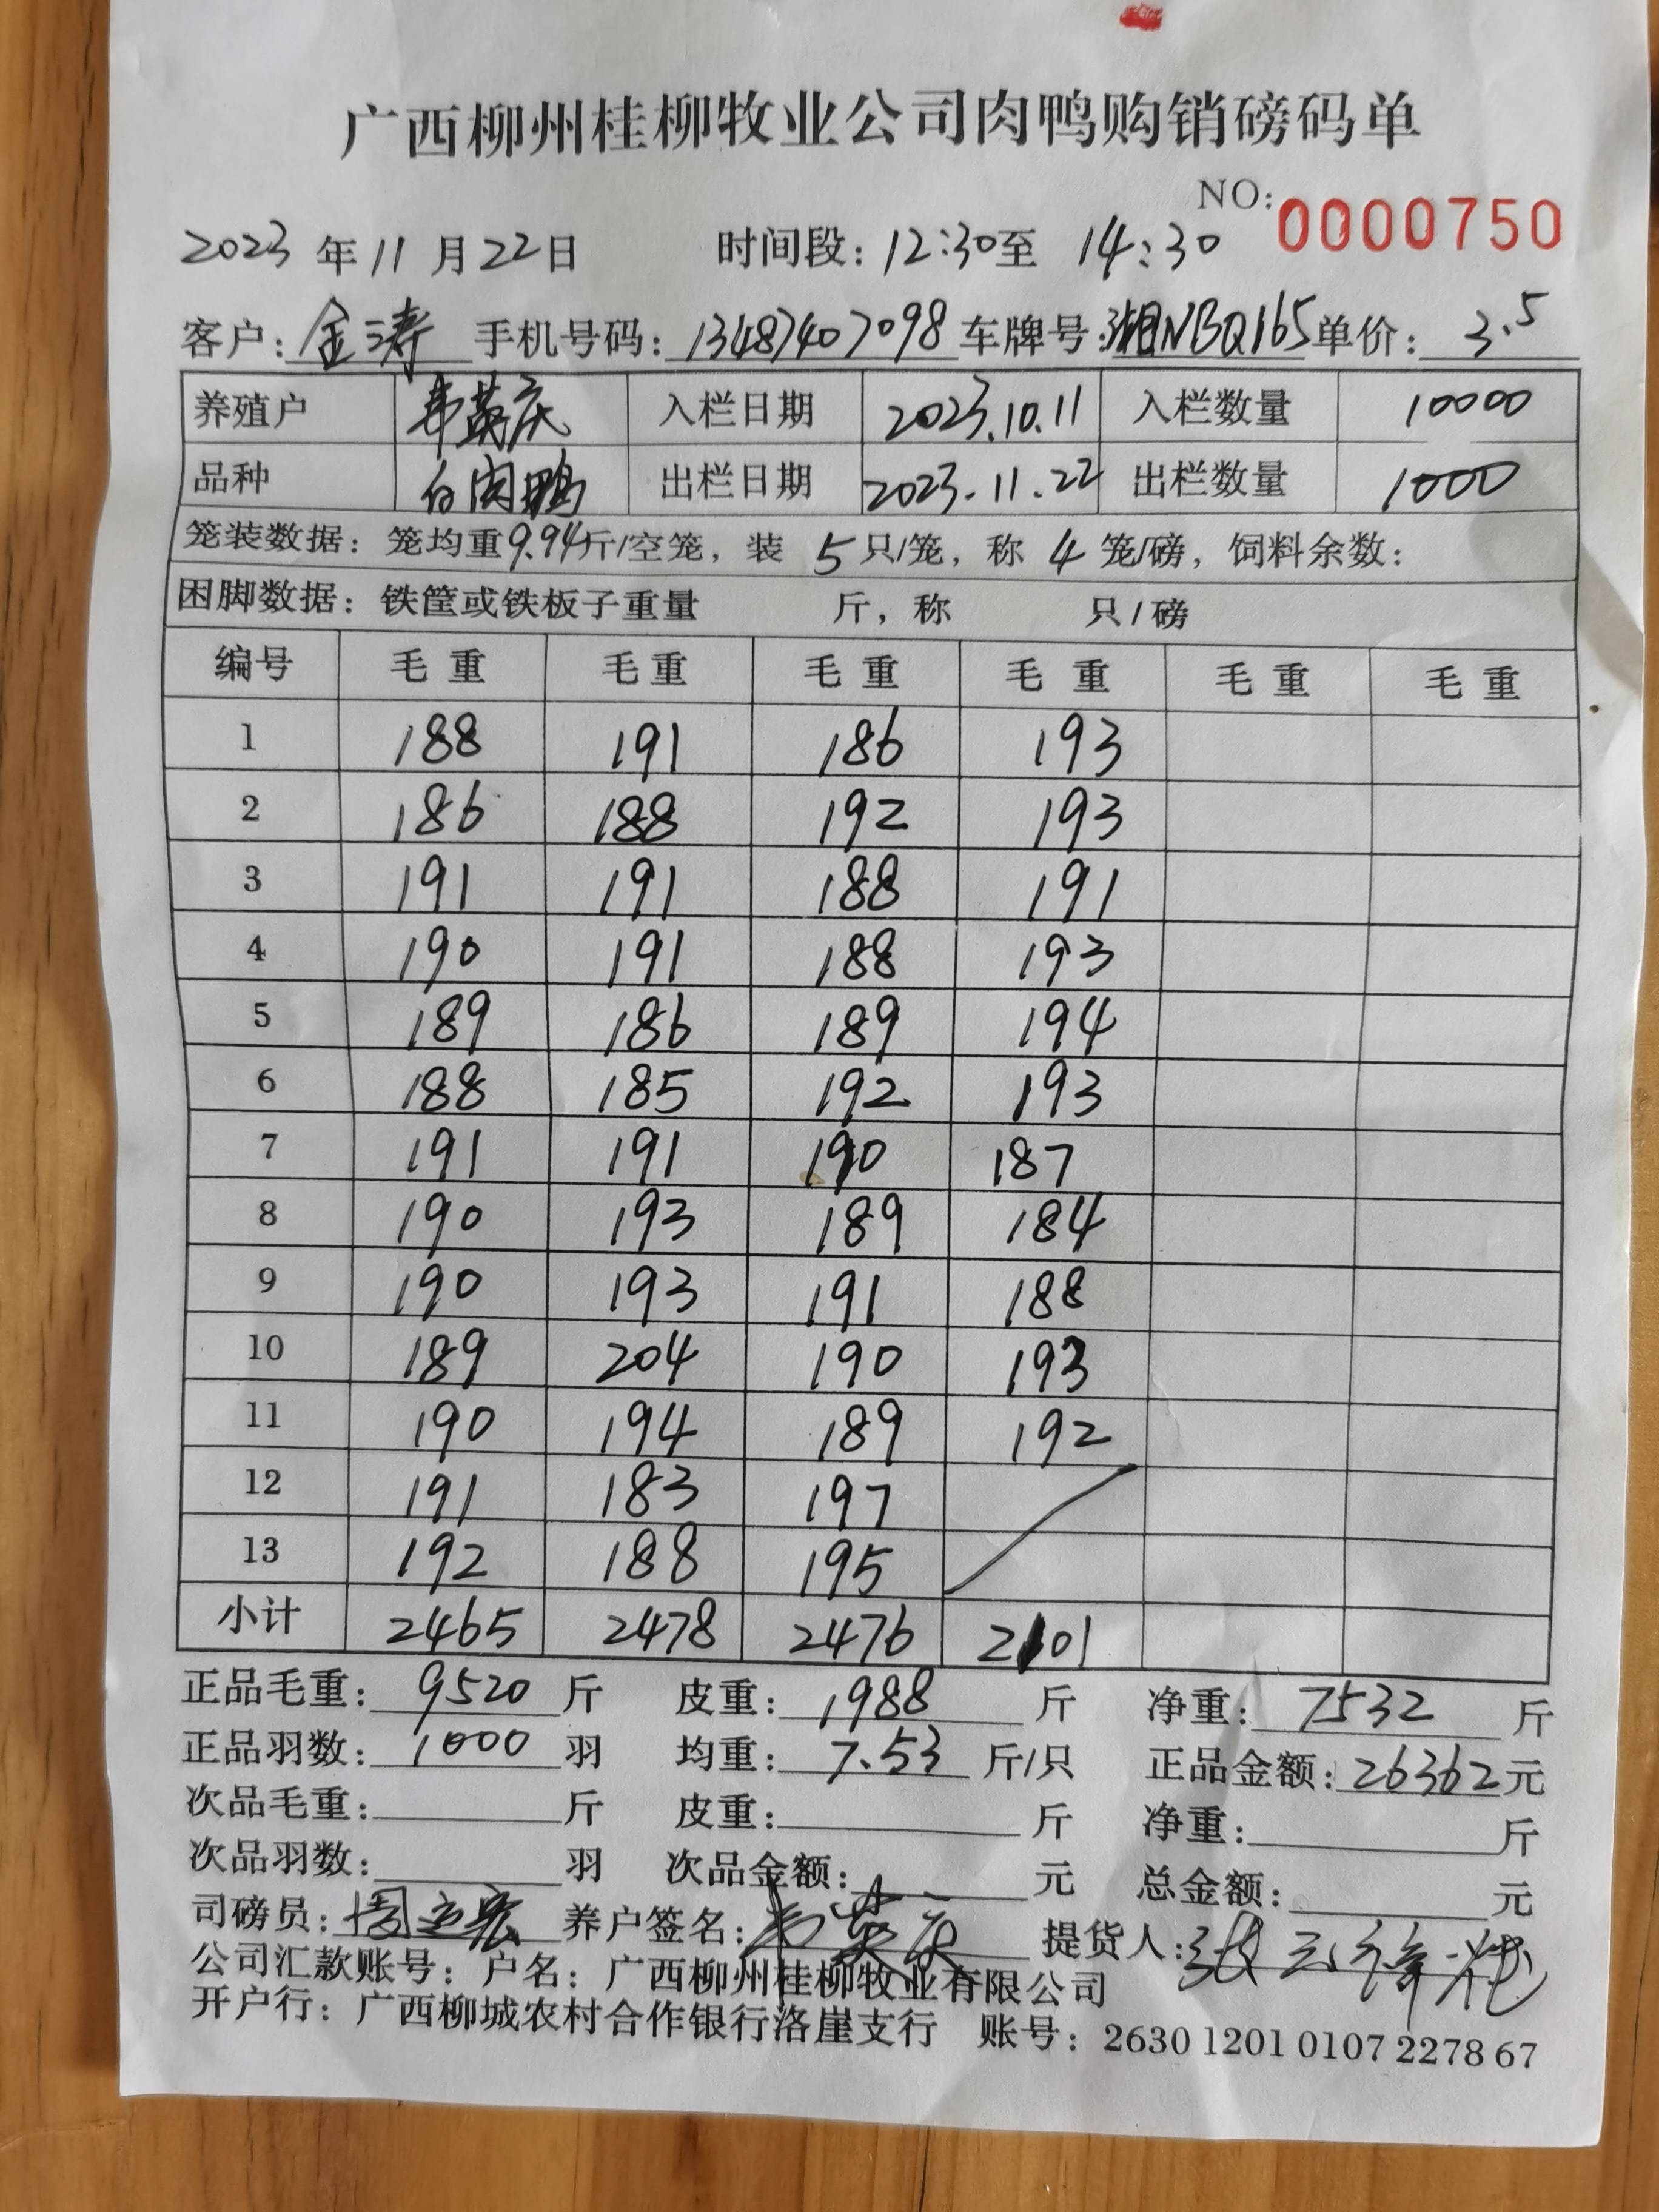 广西柳州桂柳牧业公司肉鸭购销磅码单
NO: 0000750
2023 年 11 月 22 日 时间段: 12:30 至 14:30
客户: 金涛 手机号码: 13487407098 车牌号: 湘NBQ165 单价: 3.5
养殖户 韦英庆 入栏日期 2023.10.11 入栏数量 10000
品种 白肉鸭 出栏日期 2023.11.22 出栏数量 1000
笼装数据: 笼均重 9.94 斤/空笼, 装 5 只/笼, 称 4 笼/磅, 饲料余数:
困脚数据: 铁筐或铁板子重量 斤, 称 只/磅
编号 毛重 毛重 毛重 毛重 毛重 毛重
1 188 191 186 193
2 186 188 192 193
3 191 191 188 191
4 190 191 188 193
5 189 186 189 194
6 188 185 192 193
7 191 191 190 187
8 190 193 189 184
9 190 193 191 188
10 189 204 190 193
11 190 194 189 192
12 191 183 197
13 192 188 195
小计 2465 2478 2476 2101
正品毛重: 9520 斤 皮重: 1988 斤 净重: 7532 斤
正品羽数: 1000 羽 均重: 7.53 斤/只 正品金额: 26362 元
次品毛重: 斤 皮重: 斤 净重: 斤
次品羽数: 羽 次品金额: 元 总金额: 元
司磅员: 周 养户签名: 韦英庆 提货人:
公司汇款账号: 户名: 广西柳州桂柳牧业有限公司
开户行: 广西柳城农村合作银行洛崖支行 账号: 2630 1201 0107 2278 67